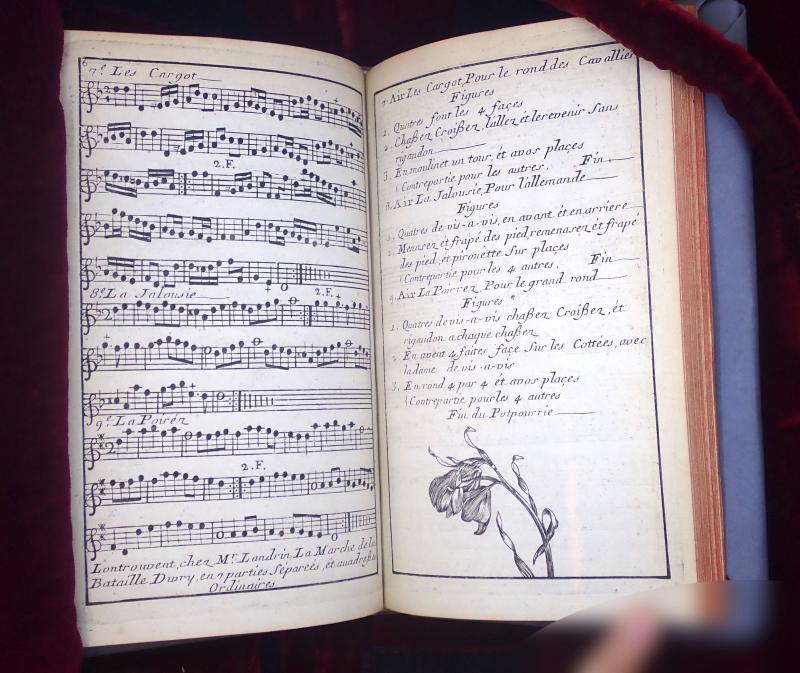 6
7.e Les Cargot
2.F.
8.e La Jalousie
2.F.
9.e La Poirèz
2.F.
L'ontrouvent, chez Mr. Landrin, La Marche de la
Bataille Divry, en 7 parties Séparées, ét
Ordinaires
7. Air Les Cargot, Pour le rond des Cavallier
Figures
1. Quatres font les 4 façes
2. Chaßez Croißez, lallez ét le revenir Sans
rigaudon
3. En moulinet un tour, ét avos plaçes
(Contrepartie pour les autres. Fin
8. Air La Jalousie, Pour l'allemande
Figures
1. Quatres de vis-a-vis, en avant ét en arriere
2. Menasez ét frapé des pied, remenasez ét frapé
des pied, ét pirouette Sur plaçes
(Contrepartie pour les 4 autres. Fin
9. Air La Poirrez, Pour le grand rond
Figures
1. Quatres de vis-a-vis chaßez Croißez, ét
rigaudon a chaque chaßez
2. En avent 4 faites façe Sur les Cottées, avec
la dame de vis-a-vis
3. En rond 4 par 4 ét avos plaçes
(Contrepartie pour les 4 autres
Fin du Potpourrie